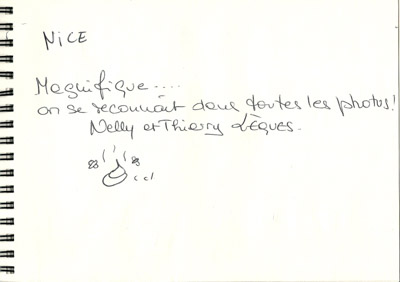 NiCE
Magnifique....
on se reconnaît dans toutes les photos!
Nelly et Thierry LÈQUES.